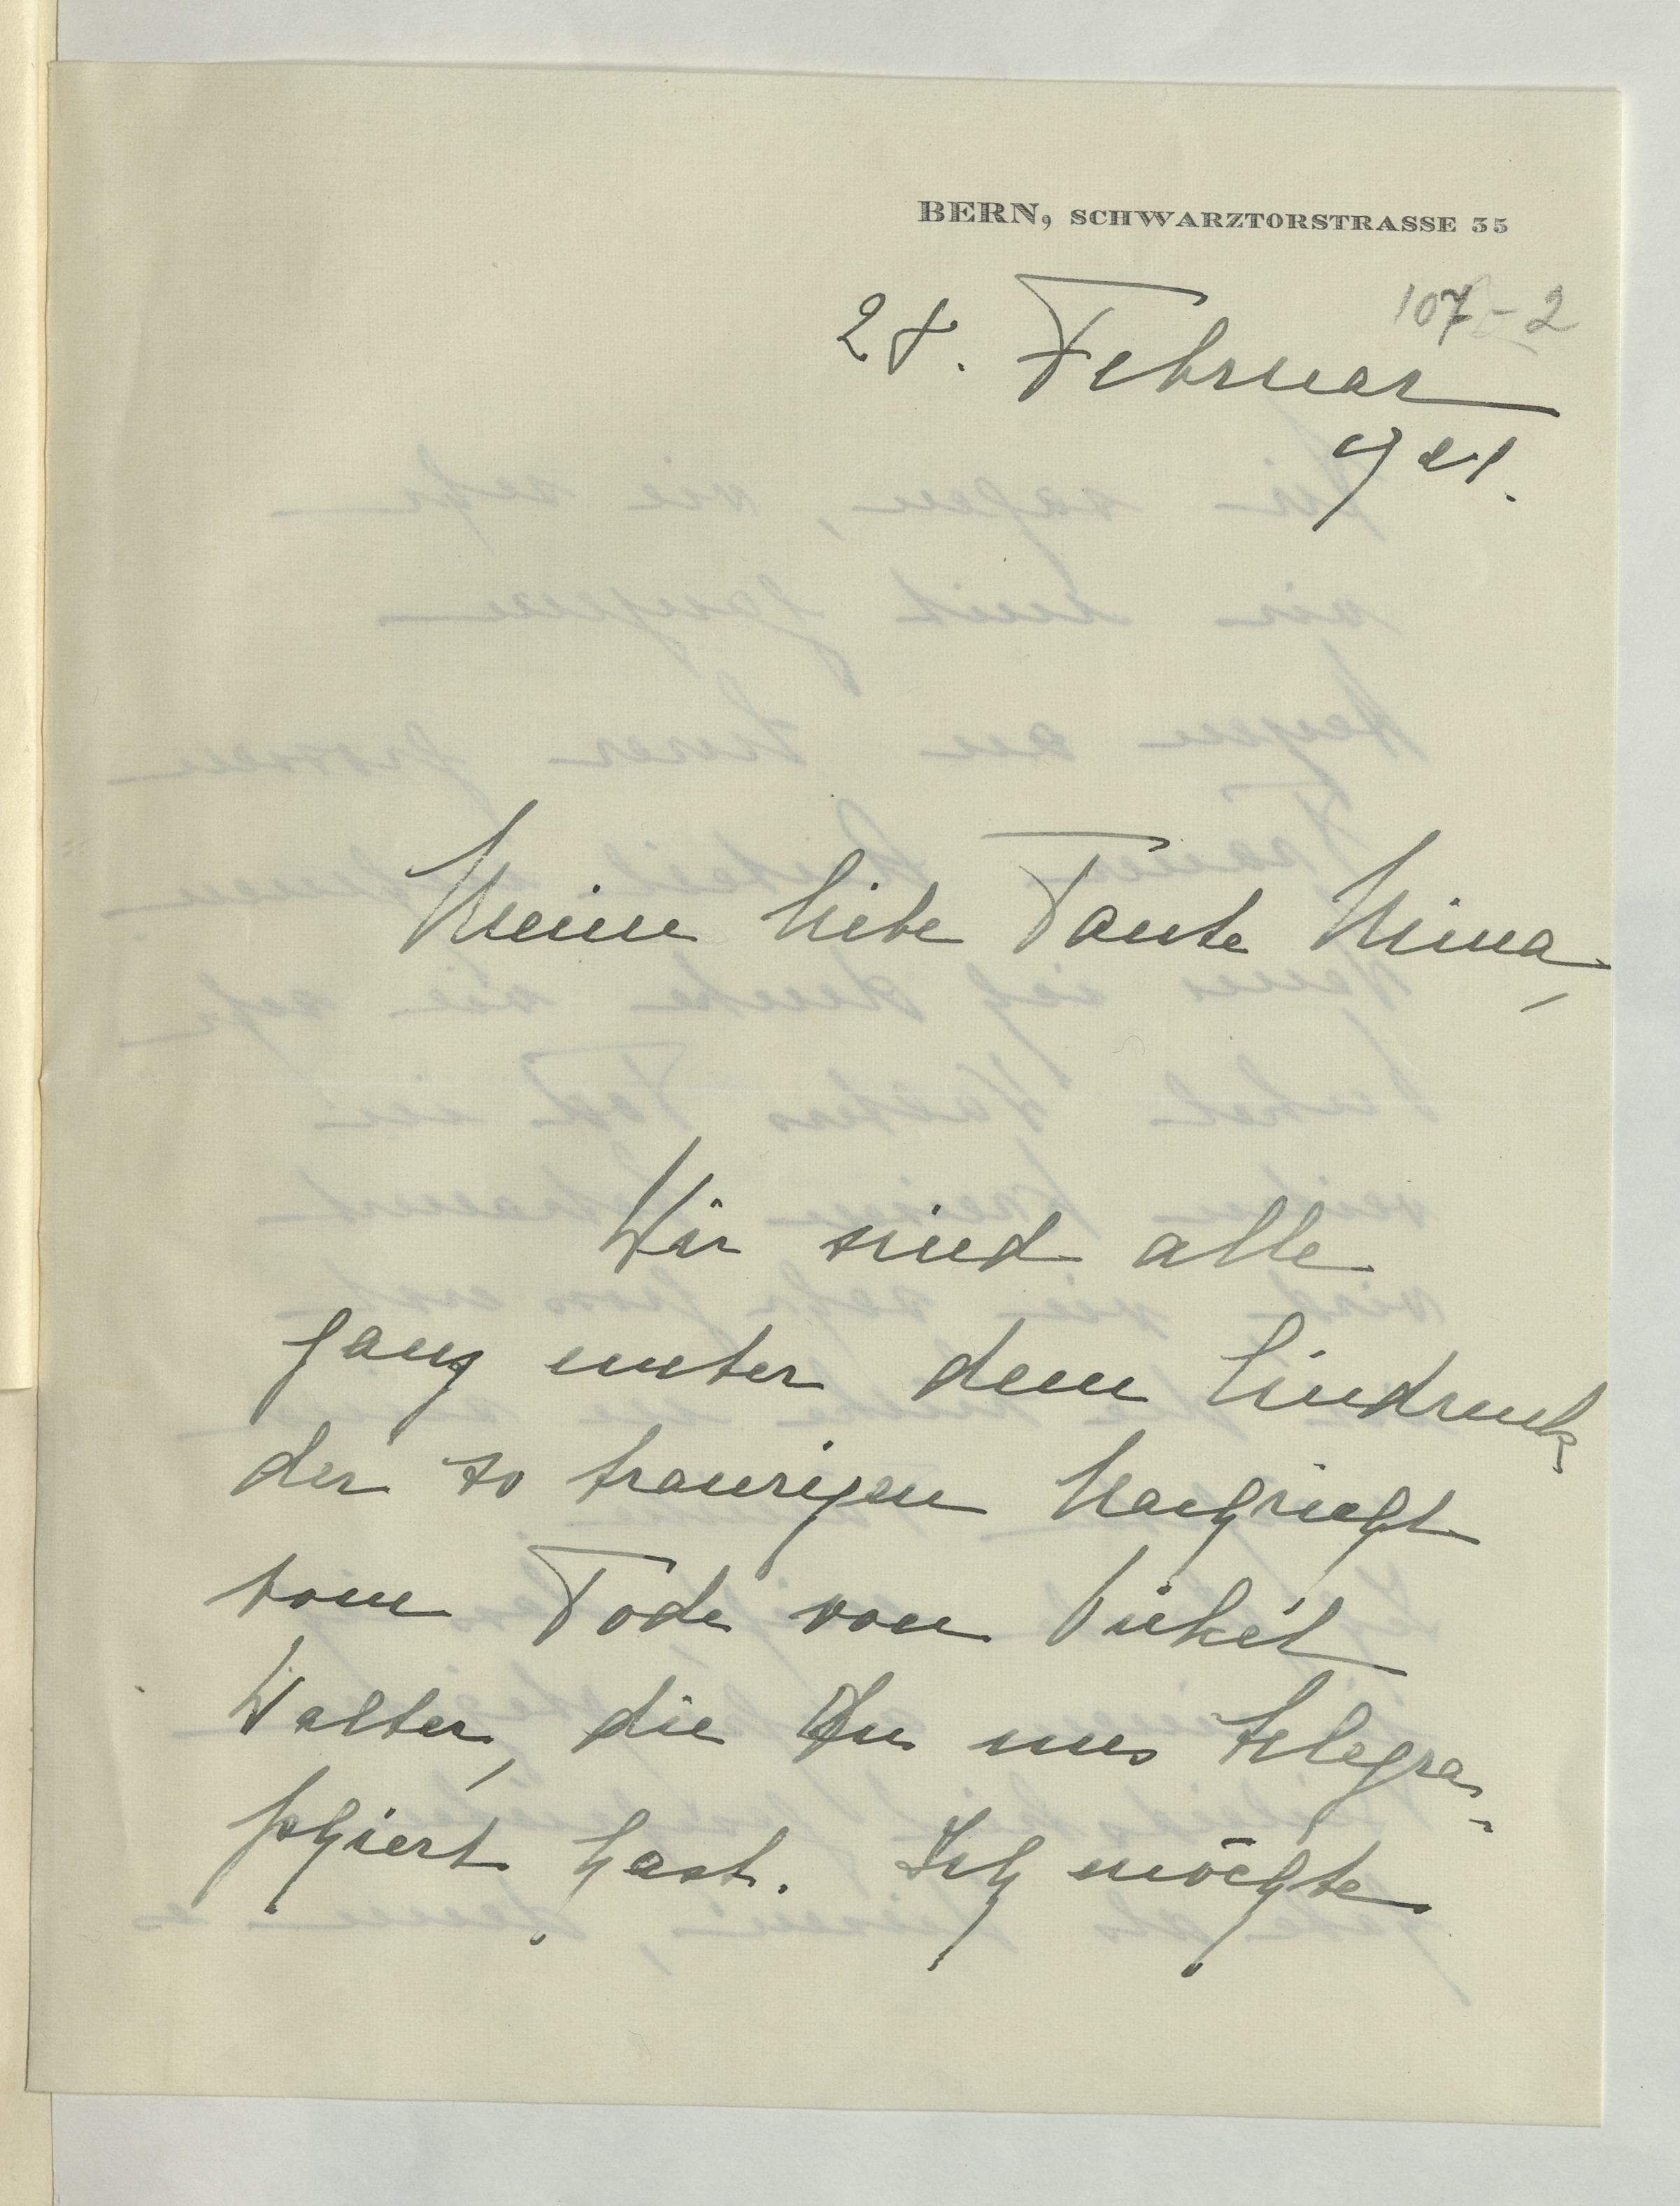 BERN, SCHWARZTORSTRASSE 35
107-2
28. Februar
921.
Meine liebe Tante Mima,
Wir sind alle
ganz unter dem Eindruck
der so traurigen Nachricht
vom Tode von Onkel
Walter, die Du uns telegra-
phiert hast. Ich möchte